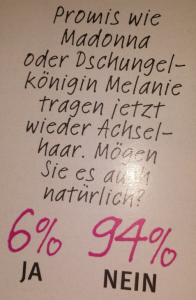 Promis wie
Madonna
oder Dschungel-
königin Melanie
tragen jetzt
wieder Achsel-
haar. Mögen
Sie es auch
natürlich?
6% 94%
JA NEIN